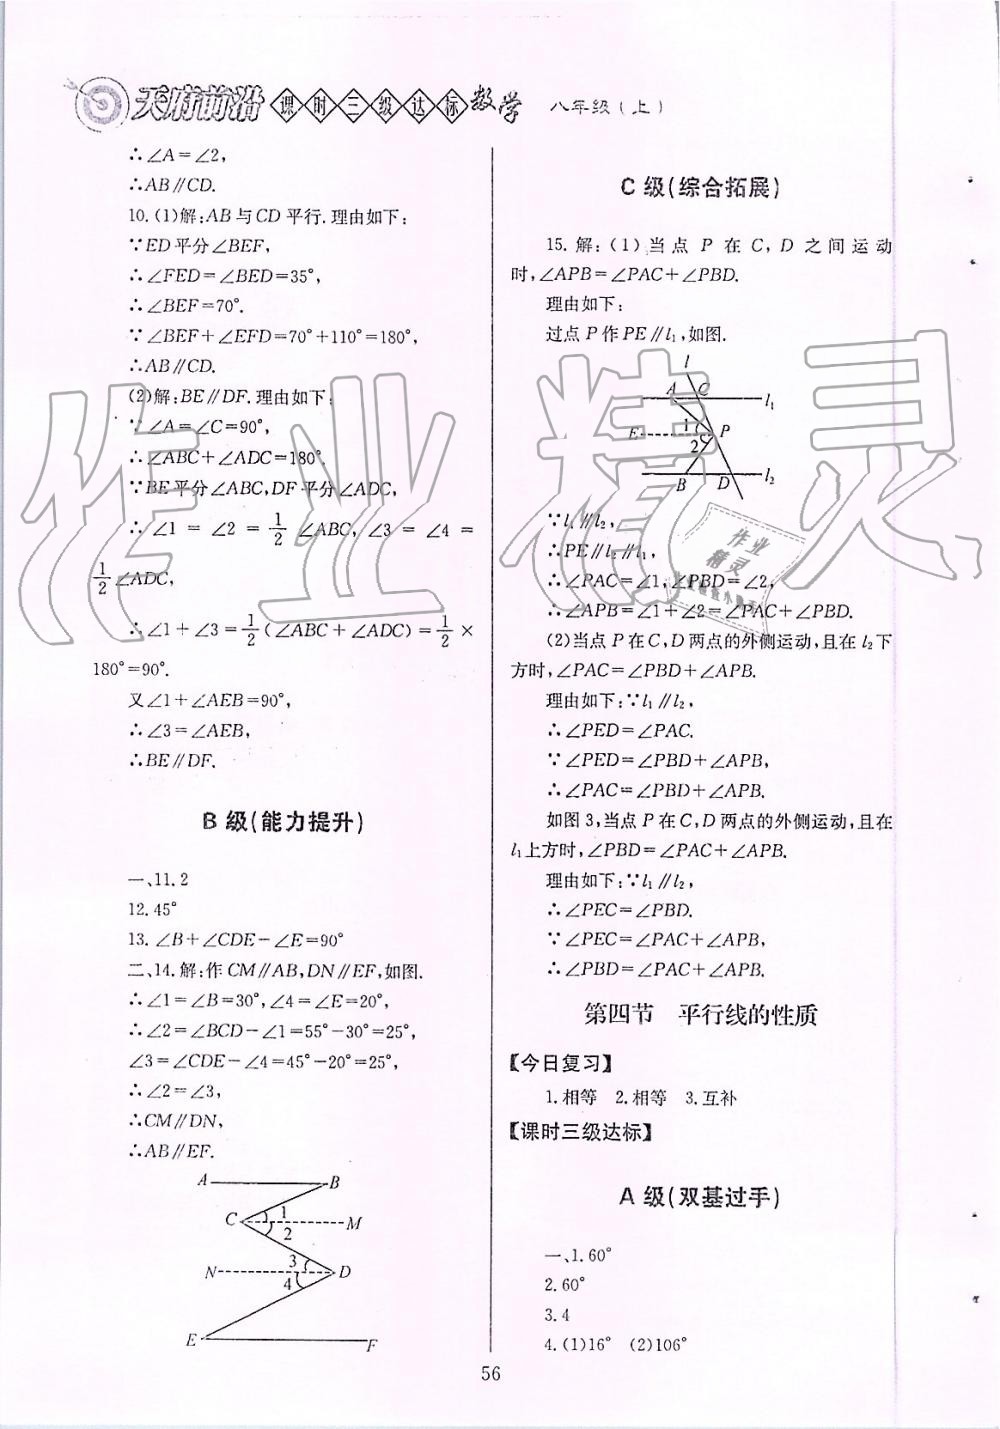 天府前沿 课时三级达标 数学 八年级(上)
∴∠A=∠2,
∴AB∥CD.
10.(1)解:AB与CD平行.理由如下:
∵ED平分∠BEF,
∴∠FED=∠BED=35°,
∴∠BEF=70°.
∵∠BEF+∠EFD=70°+110°=180°,
∴AB∥CD.
(2)解:BE∥DF.理由如下:
∵∠A=∠C=90°,
∴∠ABC+∠ADC=180°.
∵BE平分∠ABC,DF平分∠ADC,
∴∠1=∠2=1/2∠ABC,∠3=∠4=
1/2∠ADC,
∴∠1+∠3=1/2(∠ABC+∠ADC)=1/2×
180°=90°.
又∠1+∠AEB=90°,
∴∠3=∠AEB,
∴BE∥DF.
B级(能力提升)
一、11.2
12.45°
13.∠B+∠CDE-∠E=90°
二、14.解:作CM∥AB,DN∥EF,如图.
∴∠1=∠B=30°,∠4=∠E=20°,
∴∠2=∠BCD-∠1=55°-30°=25°,
∠3=∠CDE-∠4=45°-20°=25°,
∴∠2=∠3,
∴CM∥DN,
∴AB∥EF.
A B
C 1 2 M
N 3 4 D
E F
C级(综合拓展)
15.解:(1)当点P在C,D之间运动
时,∠APB=∠PAC+∠PBD.
理由如下:
过点P作PE∥l₁,如图.
l
A C l₁
E 1 2 P
B D l₂
∵l₁∥l₂,
∴PE∥l₂∥l₁,
∴∠PAC=∠1,∠PBD=∠2,
∴∠APB=∠1+∠2=∠PAC+∠PBD.
(2)当点P在C,D两点的外侧运动,且在l₂下
方时,∠PAC=∠PBD+∠APB.
理由如下:∵l₁∥l₂,
∴∠PED=∠PAC.
∵∠PED=∠PBD+∠APB,
∴∠PAC=∠PBD+∠APB.
如图3,当点P在C,D两点的外侧运动,且在
l₁上方时,∠PBD=∠PAC+∠APB.
理由如下:∵l₁∥l₂,
∴∠PEC=∠PBD.
∵∠PEC=∠PAC+∠APB,
∴∠PBD=∠PAC+∠APB.
第四节 平行线的性质
【今日复习】
1.相等 2.相等 3.互补
【课时三级达标】
A级(双基过手)
一、1.60°
2.60°
3.4
4.(1)16° (2)106°
56
作业精灵
作业
精灵